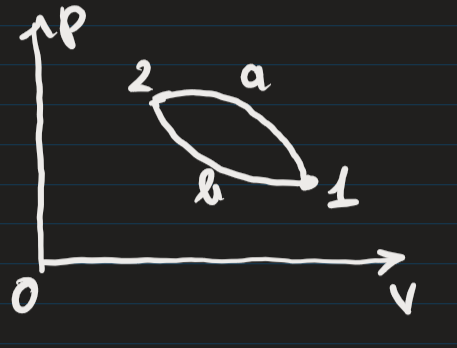 P
2 a
b 1
0 V